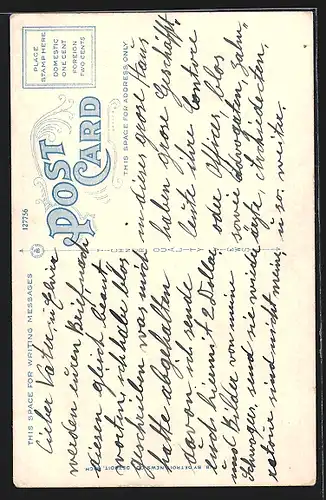 THIS SPACE FOR WRITING MESSAGES
127756
POST
CARD
PLACE
STAMP HERE
DOMESTIC
ONE CENT
FOREIGN
TWO CENTS
THIS SPACE FOR ADDRESS ONLY
QUALITY
Vater!
werden euren Brief noch
diesen gleich beant
worten, ich habe blos
geschrieben was mich
hatte abgehalten
davon ich sende
euch hiermit 2 Dollar
und Bilder von meine
Schwager, und sie wieder
retour sind nicht meine,
in dieses grose Haus
haben grose Geschäft-
leute ihre Contore
oder Offices, blos
sowie Advogaten, zahn-
ärzte, Architecten,
u. so. weiter.
DETROIT NEWS CO., DETROIT, MICH.